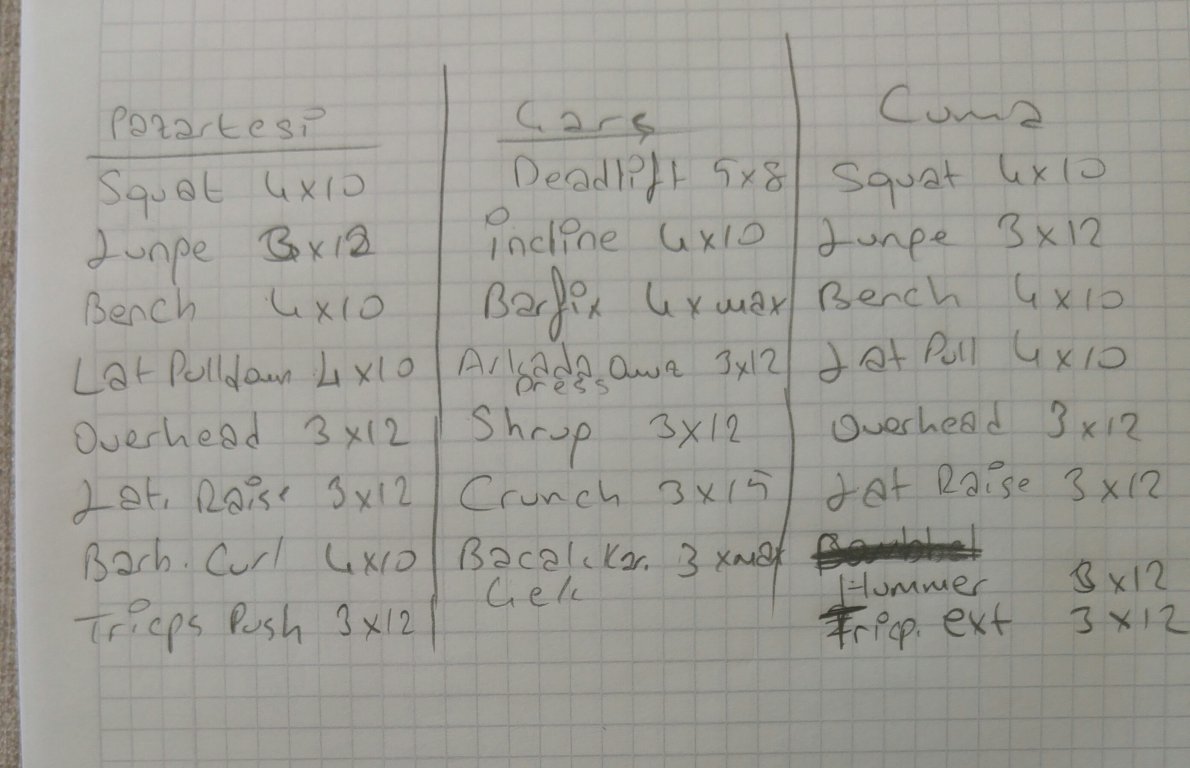 Pazartesi
Squat 4x10
Lunge 3x12
Bench 4x10
Lat Pulldown 4x10
Overhead 3x12
Lat. Raise 3x12
Barb. Curl 4x10
Triceps Push 3x12
Çarş
Deadlift 5x8
incline 4x10
Barfix 4xmax
Arkada Omz 3x12
press
Shrug 3x12
Crunch 3x15
Bacak Kar. 3xmax
Çek
Cuma
Squat 4x10
Lunge 3x12
Bench 4x10
Lat Pull 4x10
Overhead 3x12
Lat Raise 3x12
Hummer 3x12
Tricp. ext 3x12